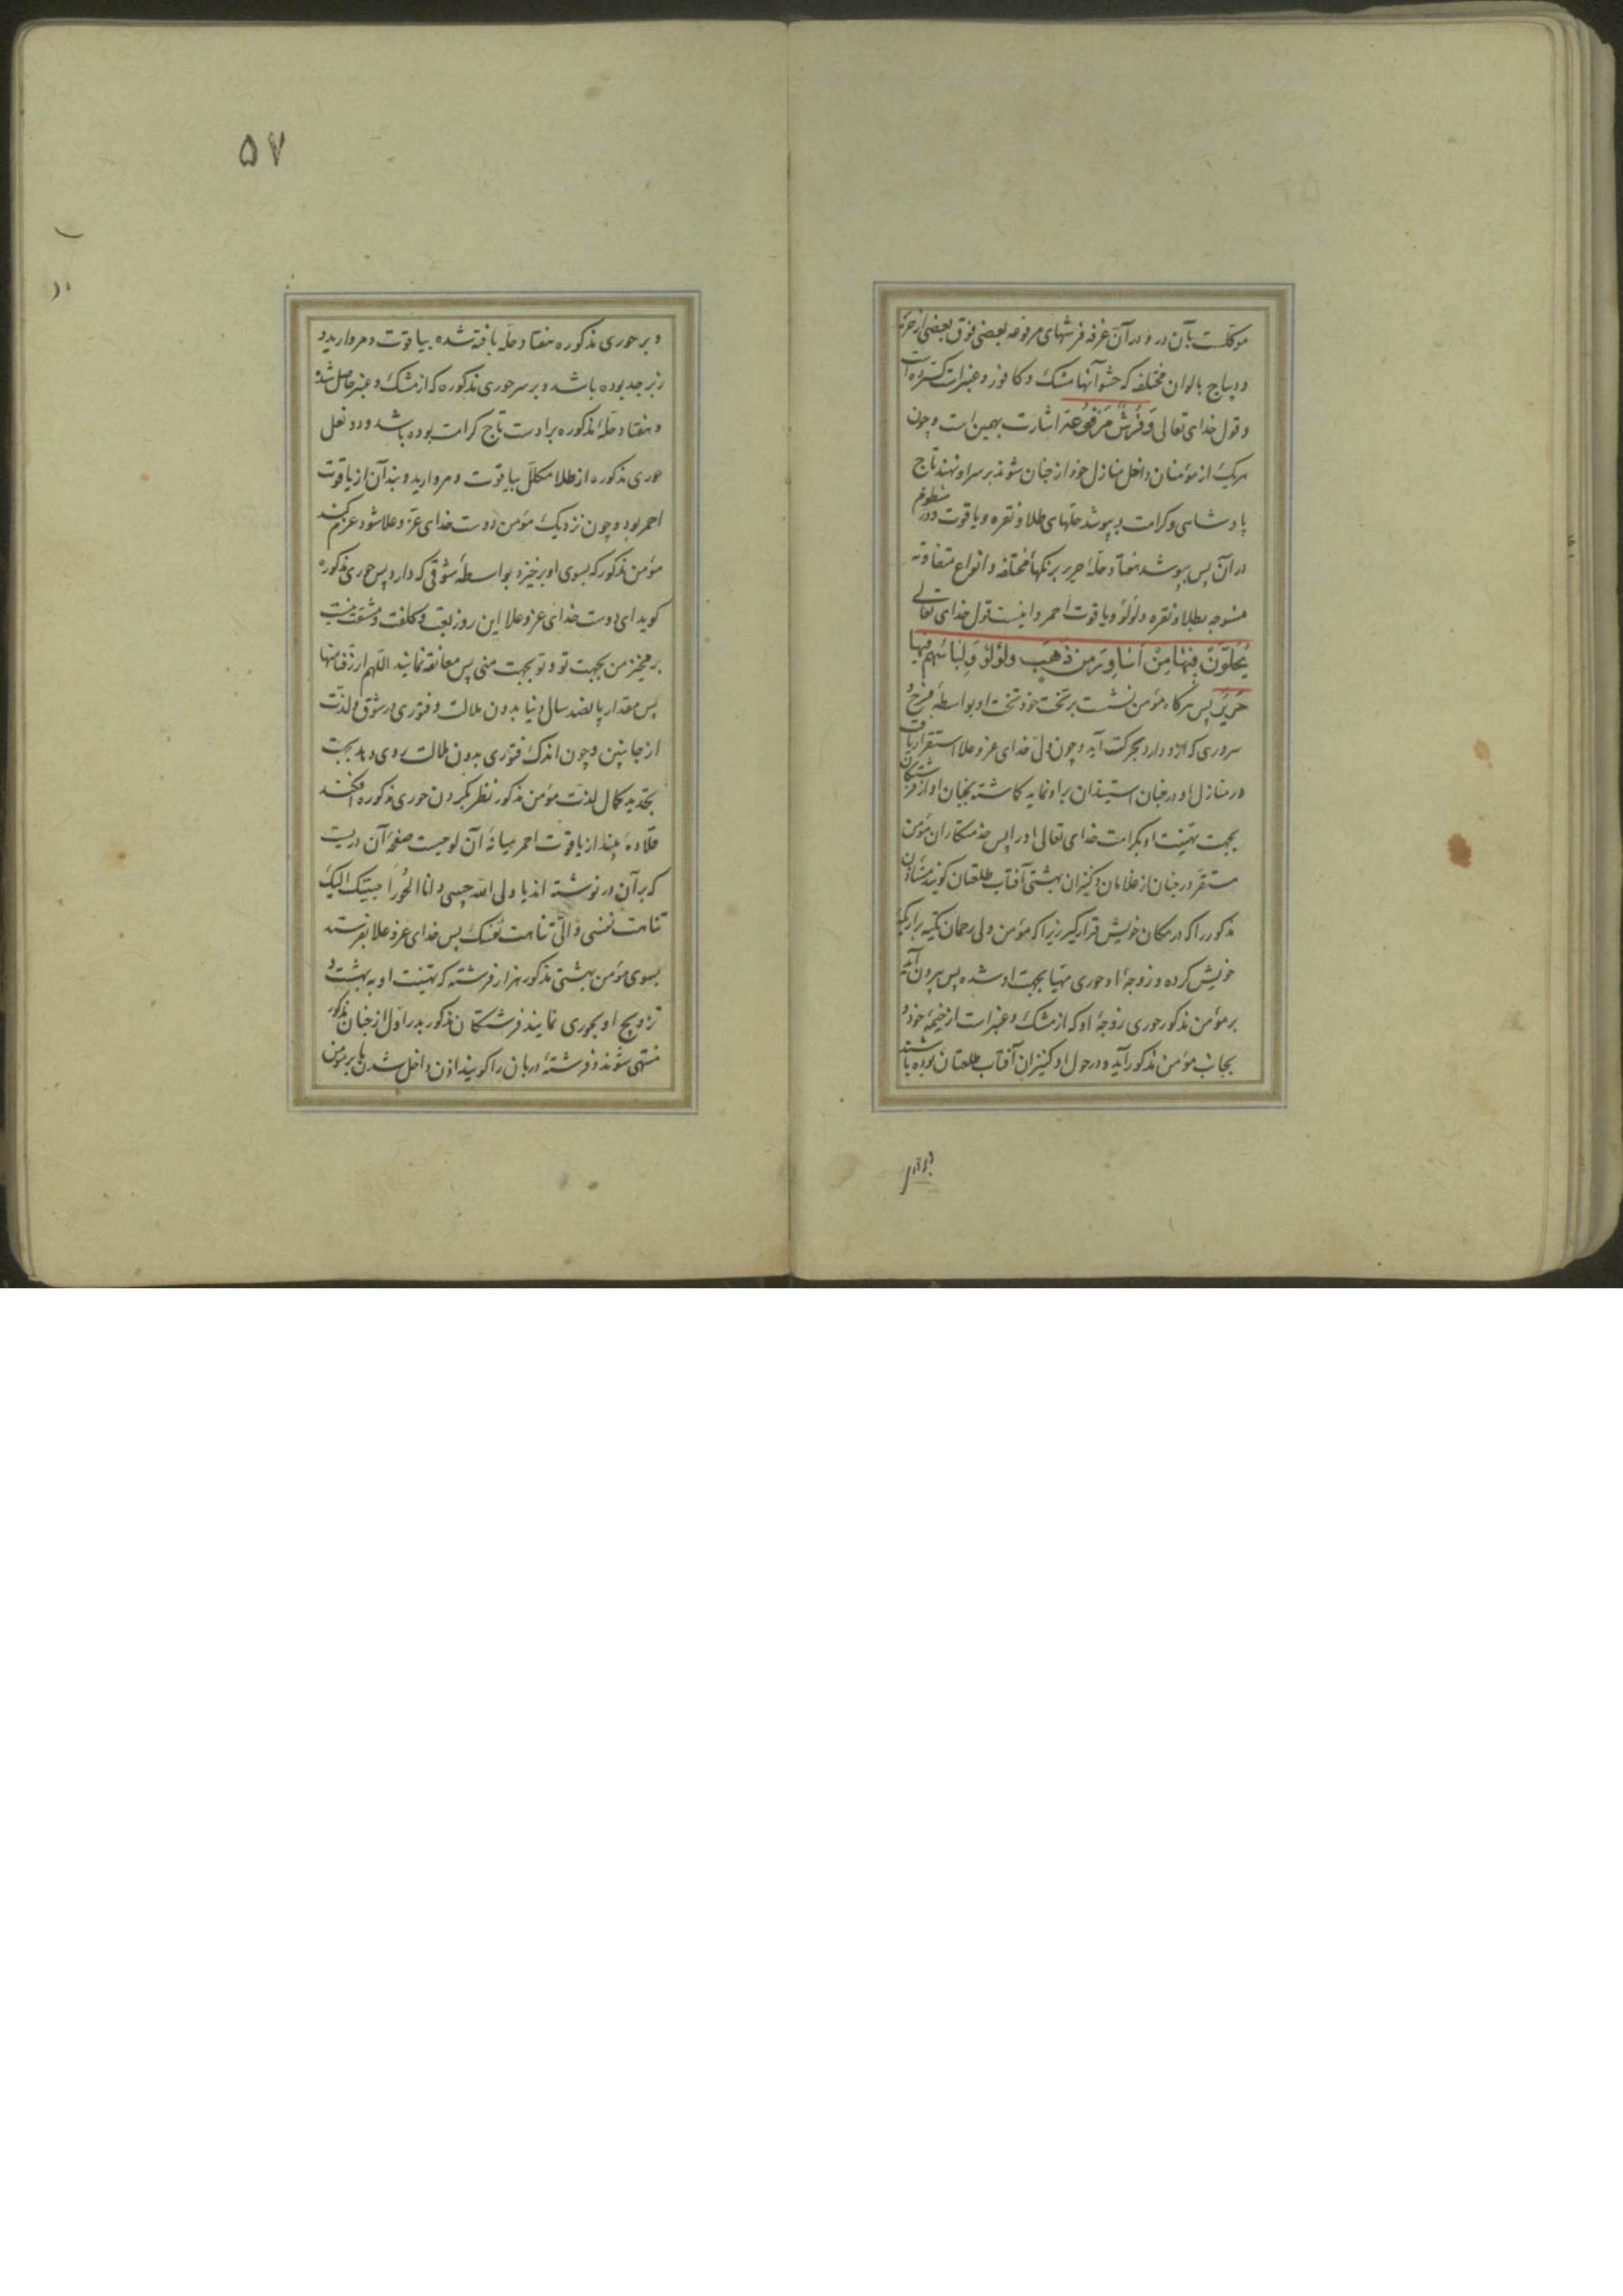 موکلست بآن در و در آن غرفه فرشهای مرفوعه بعضی فوق بعضی از حریر
و دیباج بالوان مختلفه که حشو آنها مشک و کافور و عنبراست گسترده است
و قول خدای تعالی وَفُرُشٍ مَرْفُوعَةٍ اشارت بهمین است و چون
هریک از مؤمنان داخل منازل خود از جنان شوند بر سر او نهند تاج
پادشاهی و کرامت و بپوشد حلهای طلا و نقره و یاقوت و در منظوم
در آن پس بپوشد هفتاد حلهٔ حریر برنگهاء مختلفه و انواع متفاوته
منسوجه بطلا و نقره و لؤلؤ و یاقوت احمر و اینست قول خدای تعالی
يُحَلَّوْنَ فِيهَا مِنْ أَسَاوِرَ مِنْ ذَهَبٍ وَلُؤْلُؤ وَلِبَاسُهُمْ فِيهَا
حَرِيرٌ پس هرگاه مؤمن نشست بر تخت خود تخت او بواسطهٔ فرح و
سروری که ازو دارد بحرکت آید و چون ولی خدای عز و علا استقرار یافت
در منازل او در جنان استیذان بر او نماید گماشته بجنان او از فرشتگان
بجهت تهنیت او بکرامت خدای تعالی او را پس خدمتکاران مؤمن
مستقر در جنان از غلامان و کنیزان بهشتی آفتاب طلعتان گویند مستأذن
مذکور را که در مکان خویش قرار گیر زیرا که مؤمن ولی رحمان تکیه بر اریکهٔ
خویش کرده و زوجهٔ او حوری مهیا بجهت او شده پس بیرون آید
بر مؤمن مذکور حوری زوجهٔ او که از مشک و عنبراست از خیمهٔ خود و
بجانب مؤمن مذکور آید و در حول او کنیزان آفتاب طلعتان بوده باشند
و بر حوری مذکوره هفتاد حله بافته شده بیاقوت و مروارید و
زبرجد بوده باشد و بر سر حوری مذکوره که از مشک و عنبر حاصل شده
و هفتاد حلهٔ مذکوره بر اوست تاج کرامت بوده باشد و دو نعل
حوری مذکوره از طلا مکلل بیاقوت و مروارید و بند آن از یاقوت
احمر بود و چون نزدیک مؤمن دوست خدای عز و علا شود عزم کند
مؤمن مذکور که بسوی او برخیزد بواسطهٔ شوقی که دارد پس حوری مذکوره
گوید ای دوست خدای عز و علا این روز تعب و کلفت و مشقت نیست
برمخیز من بجهت تو و تو بجهت منی پس معانقه نمایند اللهم ارزقنا منها
پس مقدار پانصد سال دنیا بدون ملالت و فتوری در شوق و لذت
از جانبین و چون اندک فتوری بدون ملالت روی دهد بجهت
تجدید کمال لذت مؤمن مذکور نظر بگردن حوری مذکوره افکند
قلادهٔ بیند از یاقوت احمر میانهٔ آن لوحیست صفحهٔ آن دریست
که بر آن در نوشته اند یا ولی الله حبیبی و انا الحورا حبیبتک الیک
تناهت نفسی و الی تناهت نفسک پس خدای عز و علا بفرستد
بسوی مؤمن بهشتی مذکور هزار فرشته که تهنیت او به بهشت و
تزویج او بحوری نمایند فرشتگان مذکور بدر اول از جنان مذکور
منتهی شوند و فرشتهٔ دربان را گویند اذن داخل شدن ما بر مؤمن
و بر
۵۷